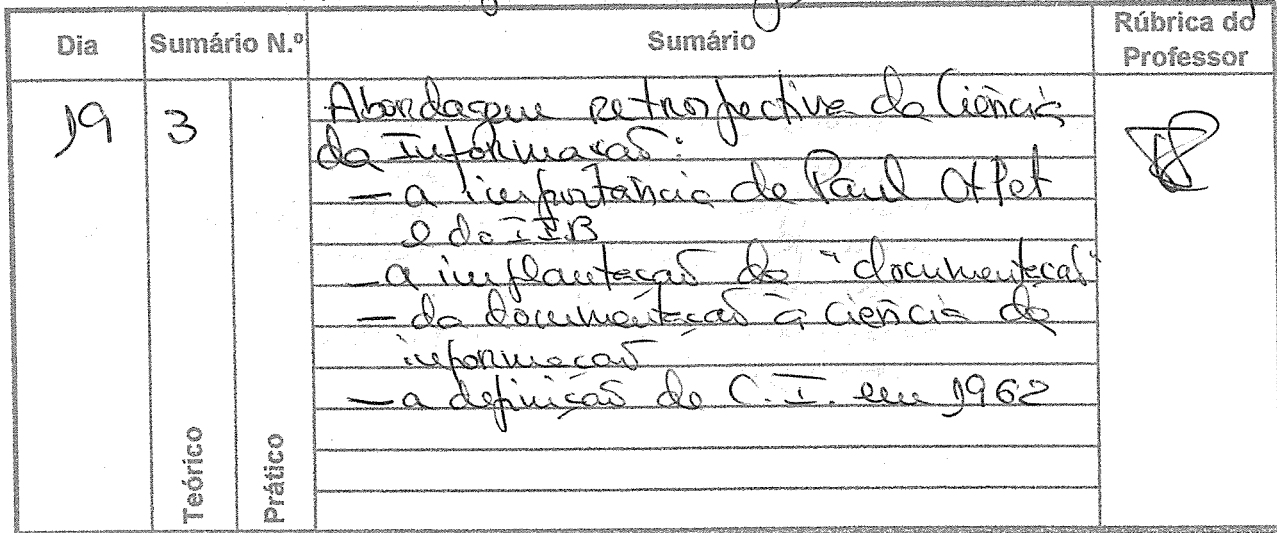 Dia Sumário N.º Sumário Rúbrica do Professor
19 3 Abordagem retrospectiva da Ciência
da Informação:
— a importância de Paul Otlet
e do IIB
— a implantação da "documentação"
— da documentação à ciência da
informação
— a definição de C.I. em 1962
Teórico Prático